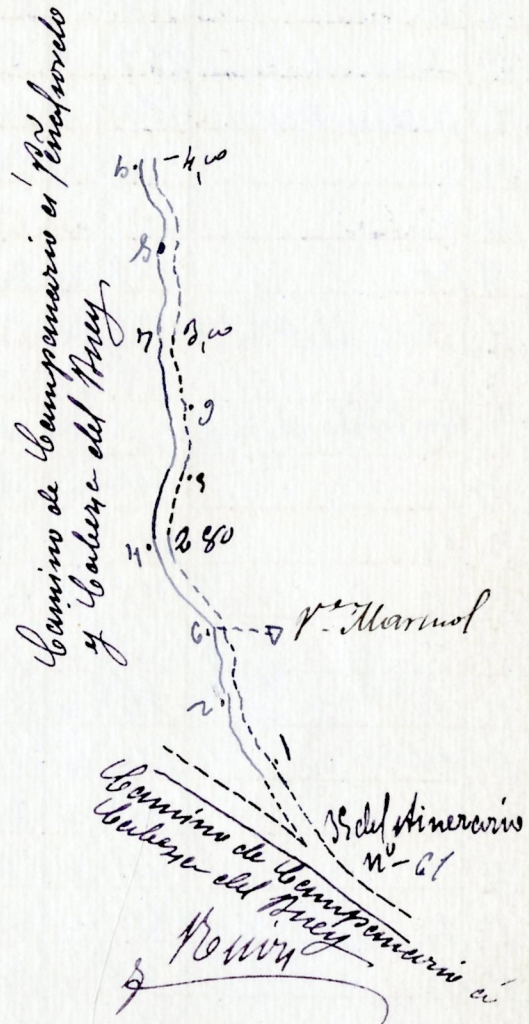 Camino de Campanario á Peñalsordo
y Cabeza del Buey
4,00
5
7
3,00
9
4
2 80
6
Vᵃ Marmol
2
1
35 del Itinerario
nº- 61
Camino de Campanario á
Cabeza del Buey